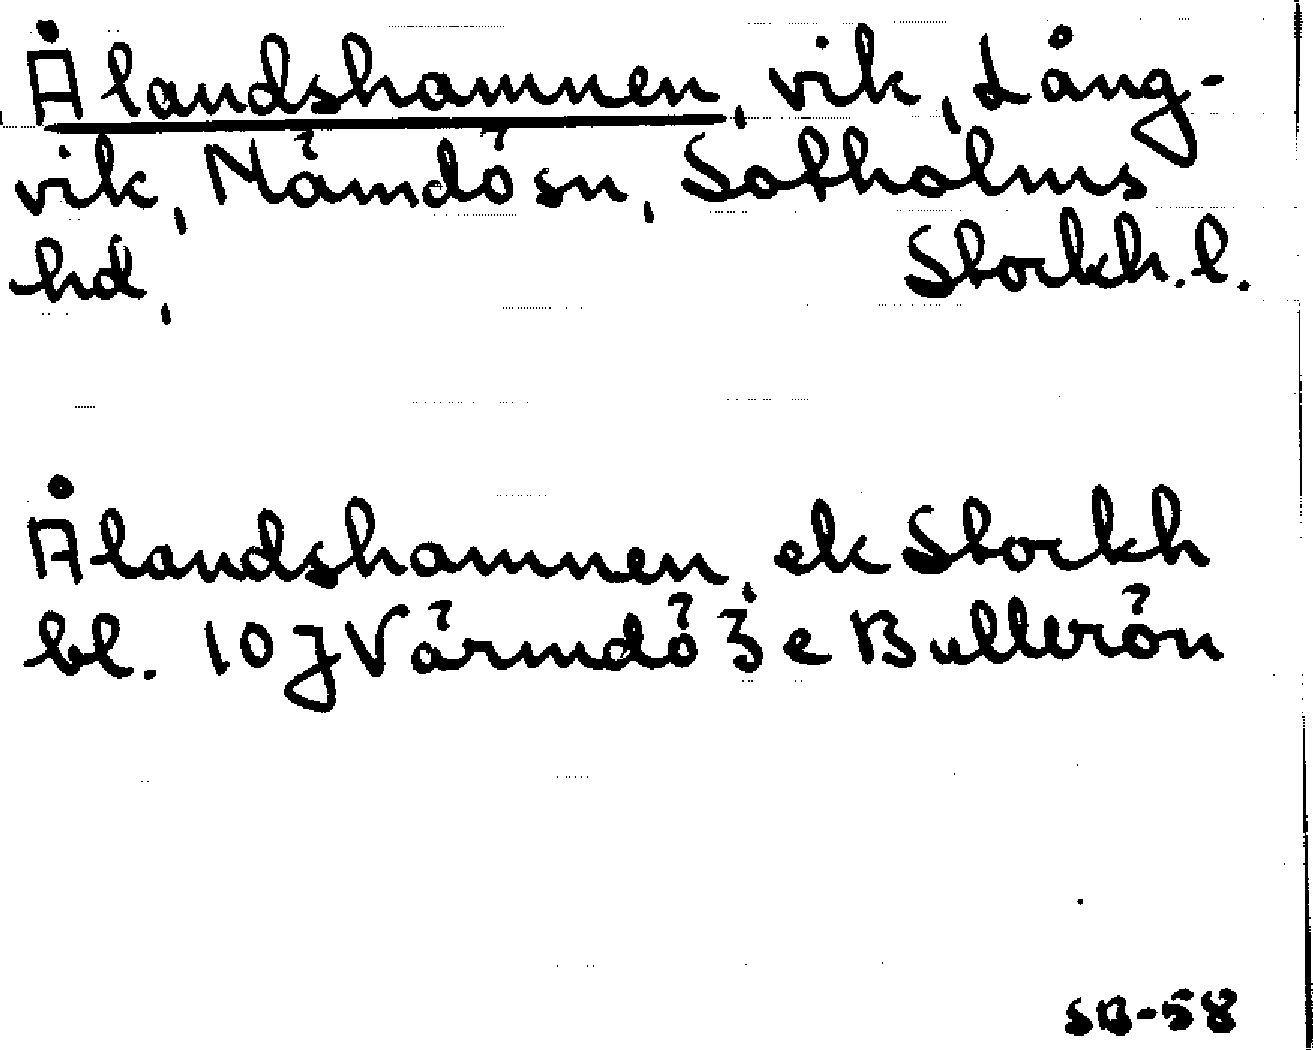 Ålandshamnen, vik, Lång-
vik, Nämdö sn, Sotholms
hd, Stockh. l.
Ålandshamnen, ek Stockh
bl. 10 J Värmdö 3 e Bullerön
SB-58